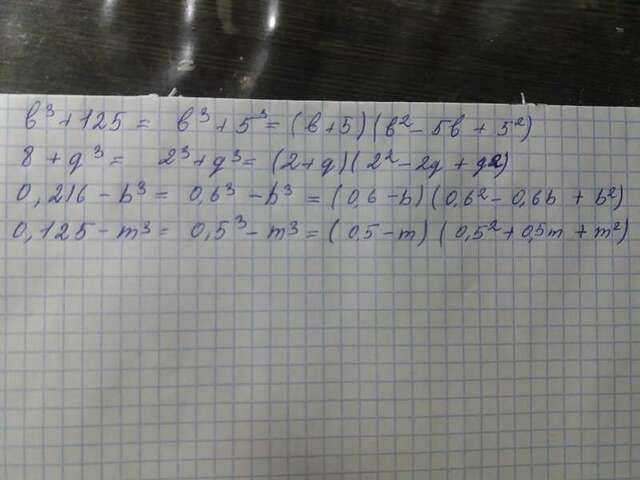 b³ + 125 = b³ + 5³ = (b + 5)(b² - 5b + 5²)
8 + q³ = 2³ + q³ = (2 + q)(2² - 2q + q²)
0,216 - b³ = 0,6³ - b³ = (0,6 - b)(0,6² - 0,6b + b²)
0,125 - m³ = 0,5³ - m³ = (0,5 - m)(0,5² + 0,5m + m²)